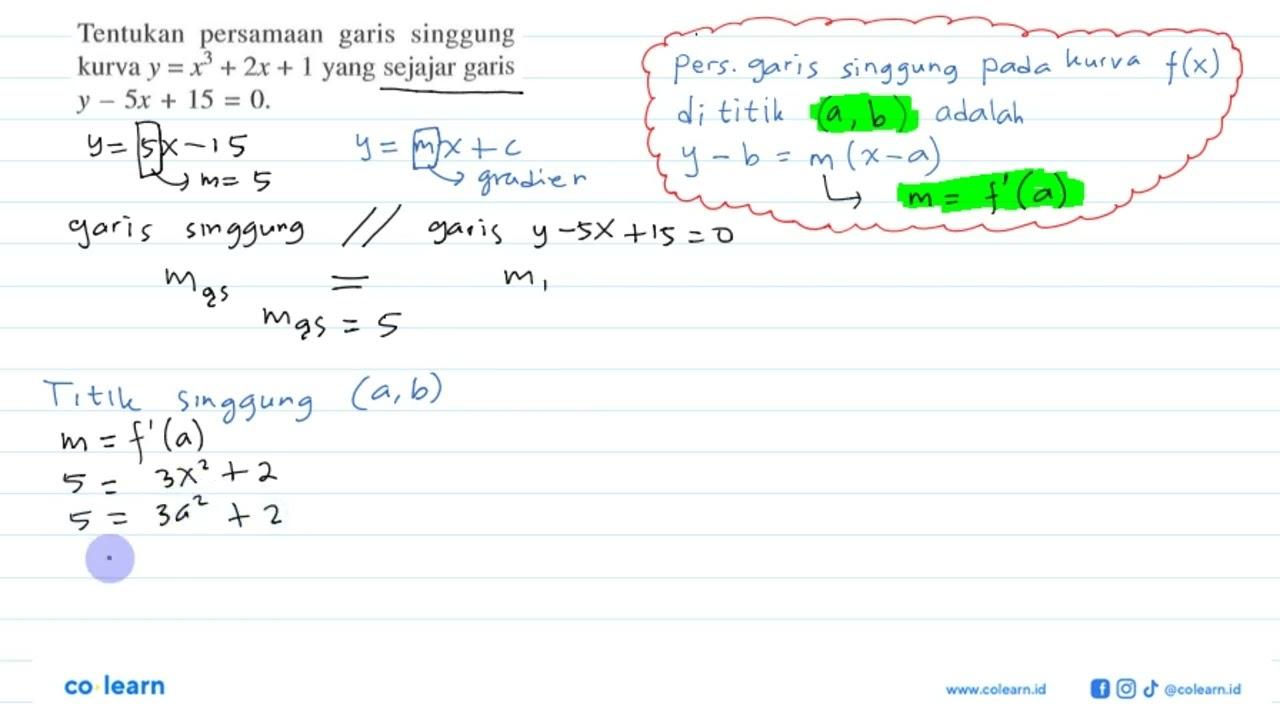 Tentukan persamaan garis singgung
kurva y = x³ + 2x + 1 yang sejajar garis
y – 5x + 15 = 0.
y = 5x - 15
m = 5
y = mx + c
gradien
Pers. garis singgung pada kurva f(x)
di titik (a, b) adalah
y - b = m (x - a)
m = f'(a)
garis singgung // garis y - 5x + 15 = 0
m gs = m₁
m gs = 5
Titik singgung (a, b)
m = f'(a)
5 = 3x² + 2
5 = 3a² + 2
co·learn
www.colearn.id
@colearn.id